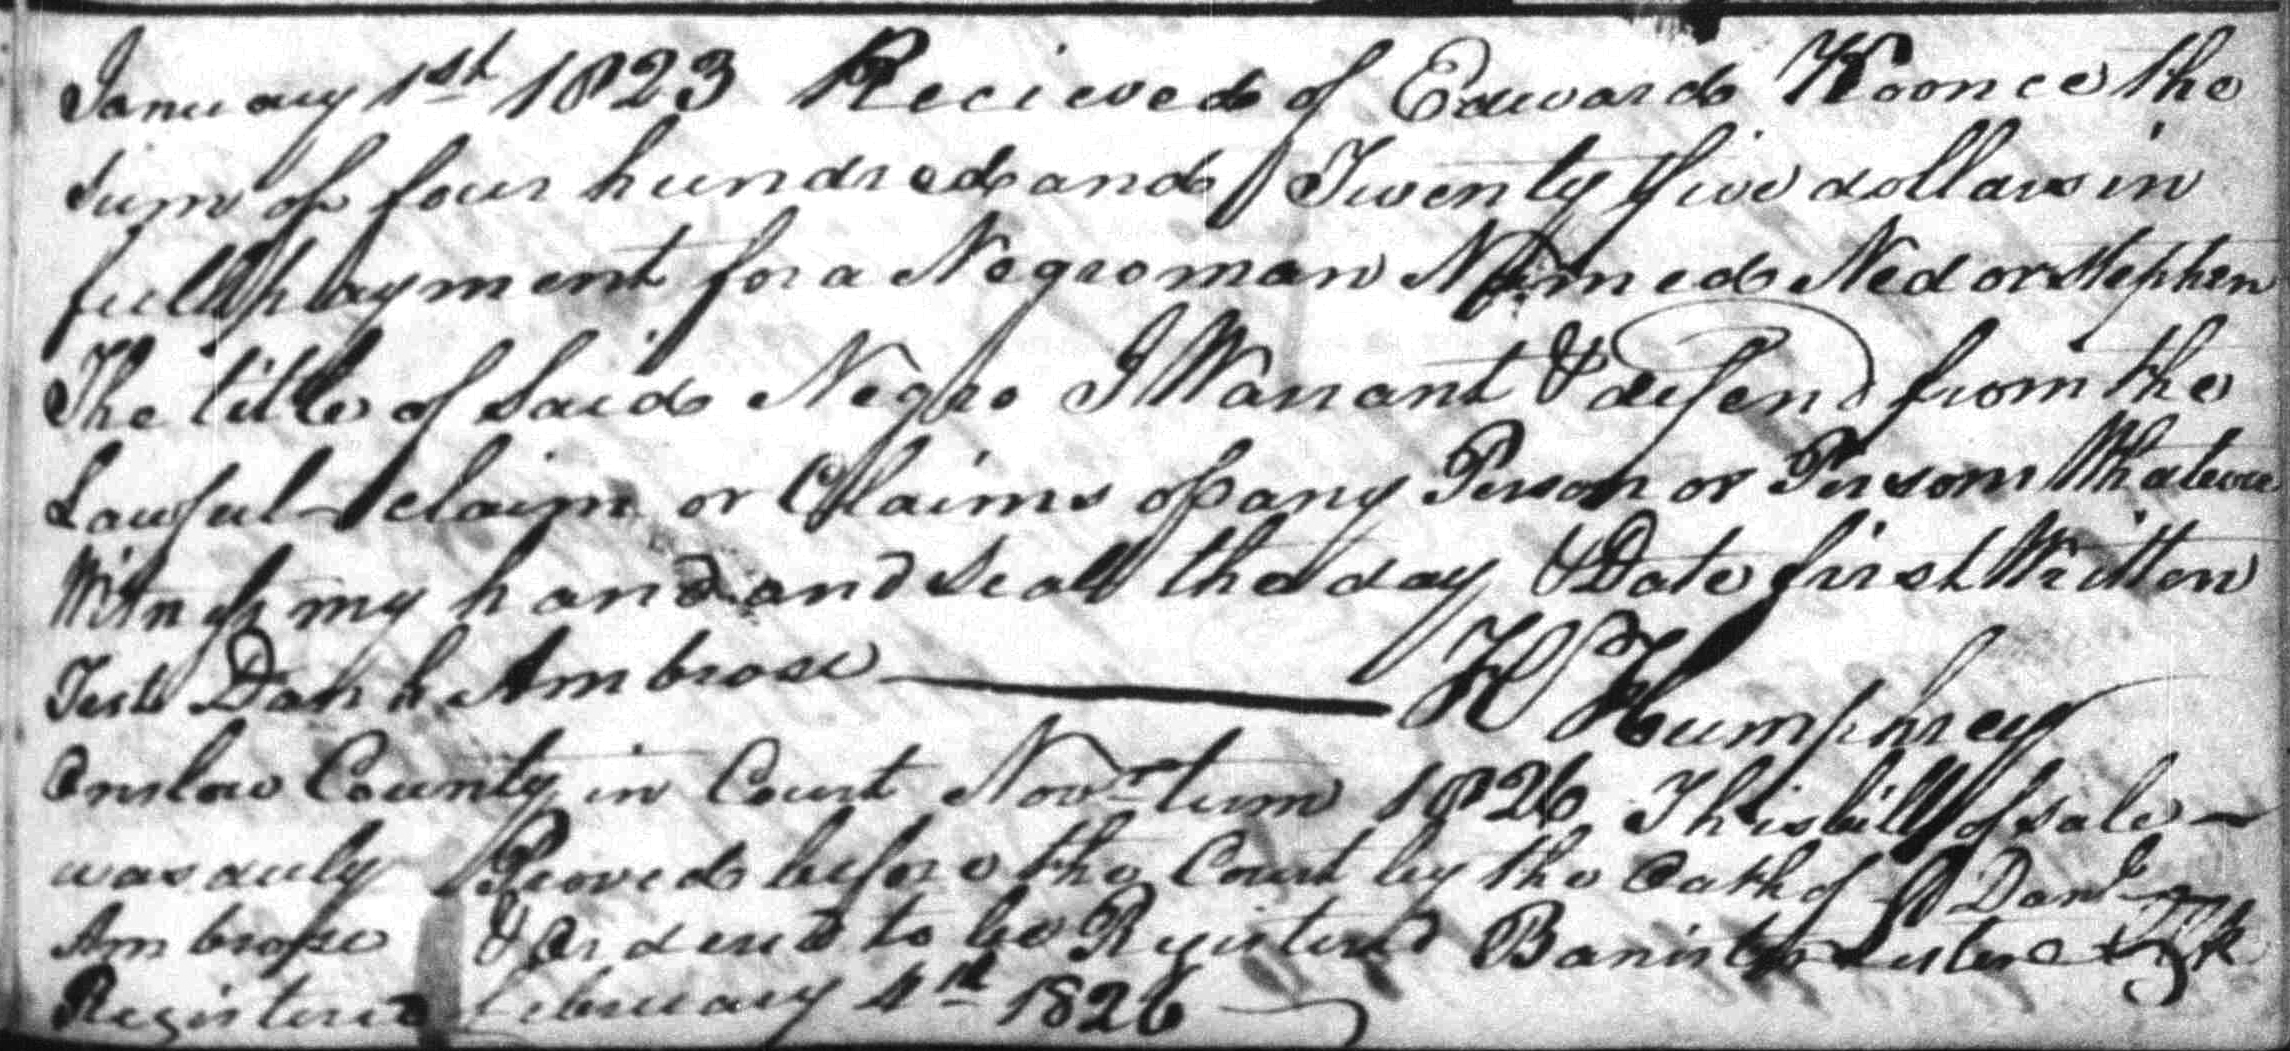 January 1st 1823 Recieved of Edward Koonce the
sum of four hundred and Twenty five dollars in
full payment for a Negro man Named Ned or Stephen
The title of said Negro I Warrant & defend from the
Lawful claim or Claims of any Person or Persons Whatever
Witness my hand and seal the day & Date first Written
Test Danl Ambrose H Humphrey
Onslow County in Court Novr term 1826 This bill of sale
was duly Proved before the Court by the Oath of Danl
Ambrose & Ordered to be Registered Banister Lester Clk
Registered February 4th 1826